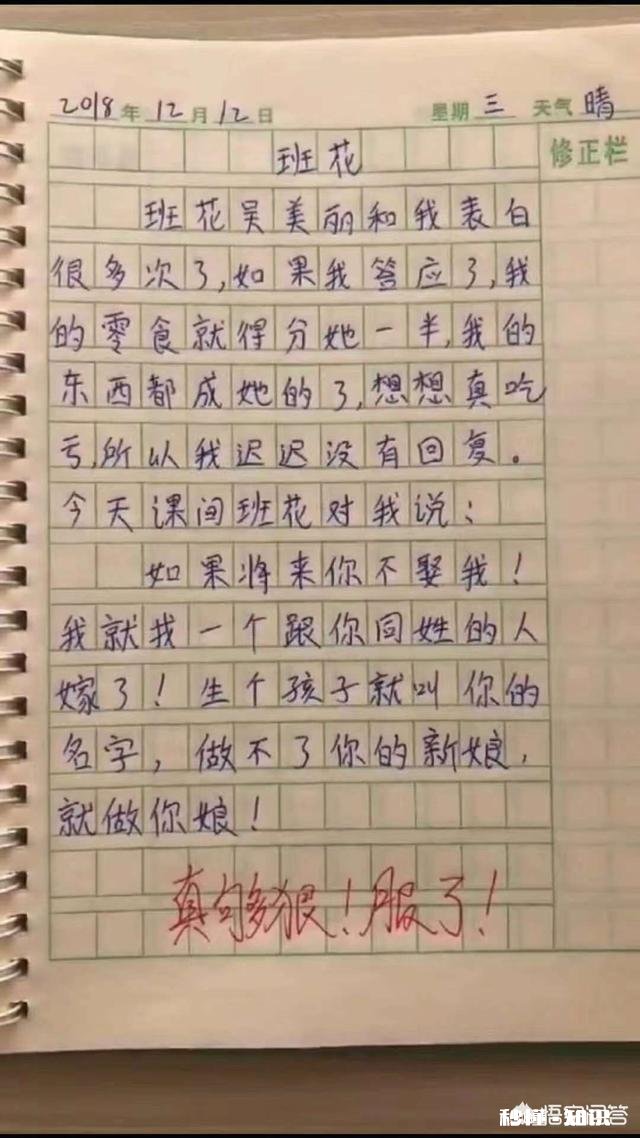 2018年12月12日 星期三 天气晴
班花
修正栏
班花吴美丽和我表白
很多次了,如果我答应了,我
的零食就得分她一半,我的
东西都成她的了,想想真吃
亏,所以我迟迟没有回复。
今天课间班花对我说:
如果将来你不娶我!
我就找一个跟你同姓的人
嫁了!生个孩子就叫你的
名字,做不了你的新娘,
就做你娘!
真够狠!服了!
悟空问答
秒懂·知识